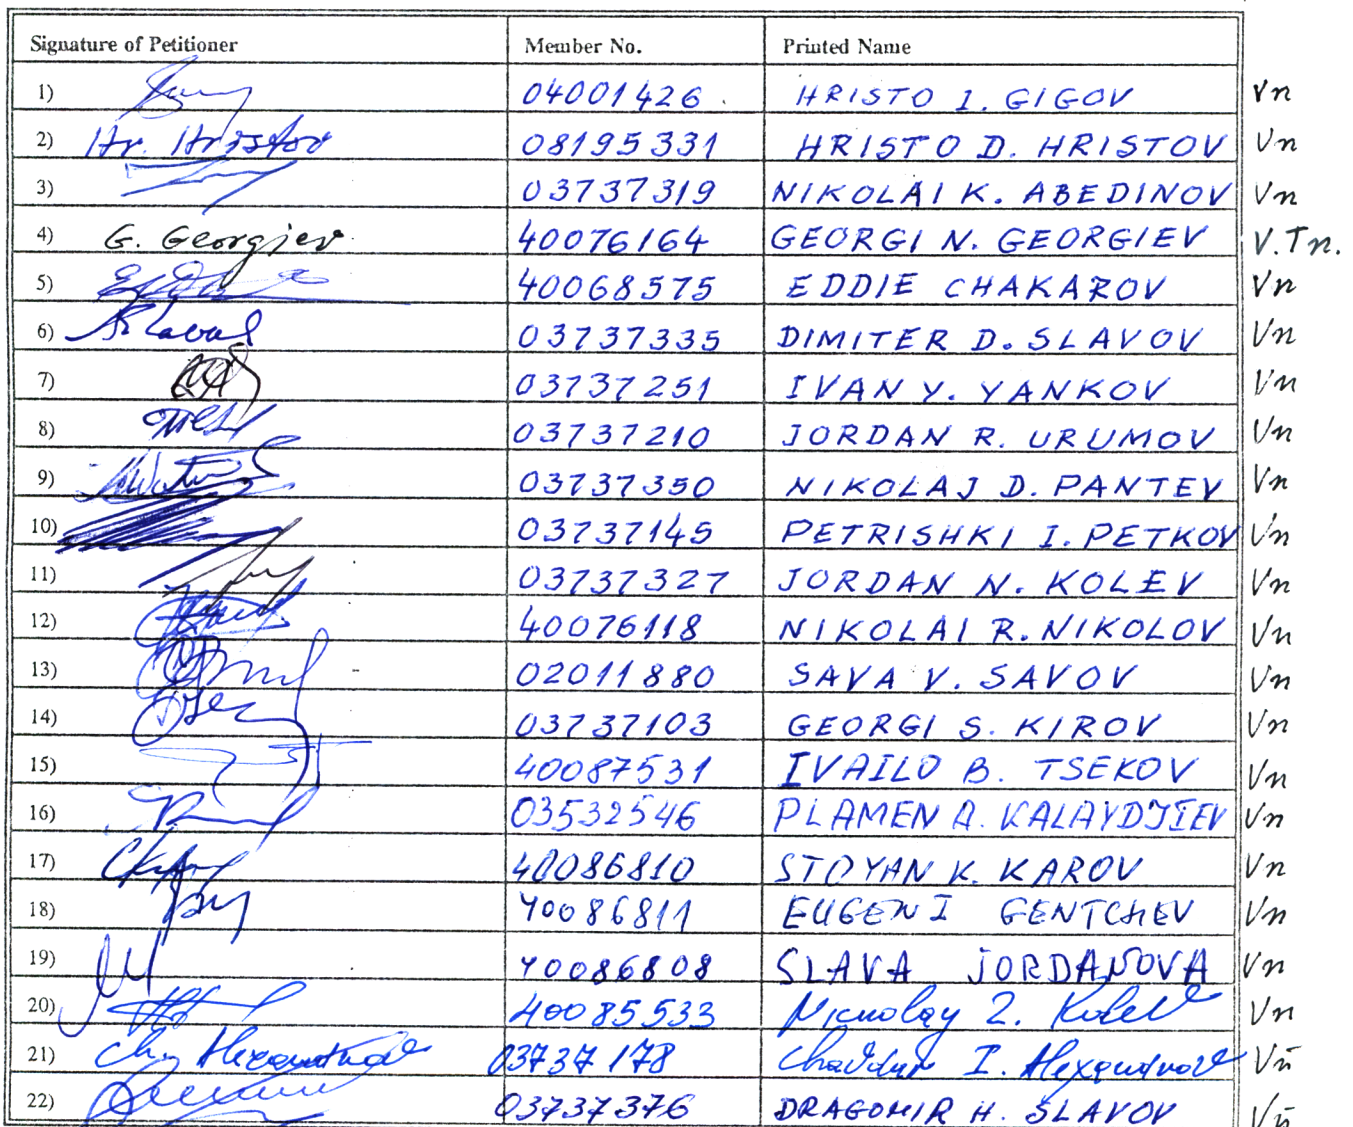 Signature of Petitioner Member No. Printed Name
1) 04001426 HRISTO I. GIGOV Vn
2) Hr. Hristov 08195331 HRISTO D. HRISTOV Vn
3) 03737319 NIKOLAI K. ABEDINOV Vn
4) G. Georgiev 40076164 GEORGI N. GEORGIEV V.Tn.
5) 40068575 EDDIE CHAKAROV Vn
6) Slavov 03737335 DIMITER D. SLAVOV Vn
7) 03737251 IVAN Y. YANKOV Vn
8) 03737210 JORDAN R. URUMOV Vn
9) 03737350 NIKOLAJ D. PANTEV Vn
10) 03737145 PETRISHKI I. PETKOV Vn
11) 03737327 JORDAN N. KOLEV Vn
12) 40076118 NIKOLAI R. NIKOLOV Vn
13) 02011880 SAVA V. SAVOV Vn
14) 03737103 GEORGI S. KIROV Vn
15) 40087531 IVAILO B. TSEKOV Vn
16) 03532546 PLAMEN A. KALAYDJIEV Vn
17) 40086810 STOYAN K. KAROV Vn
18) 40086811 EUGENI GENTCHEV Vn
19) 40086808 SLAVA JORDANOVA Vn
20) 40085533 Nickolay Z. Kolev Vn
21) Ch. Alexandrov 03737178 Chavdar I. Alexandrov Vn
22) 03737376 DRAGOMIR H. SLAVOV Vn